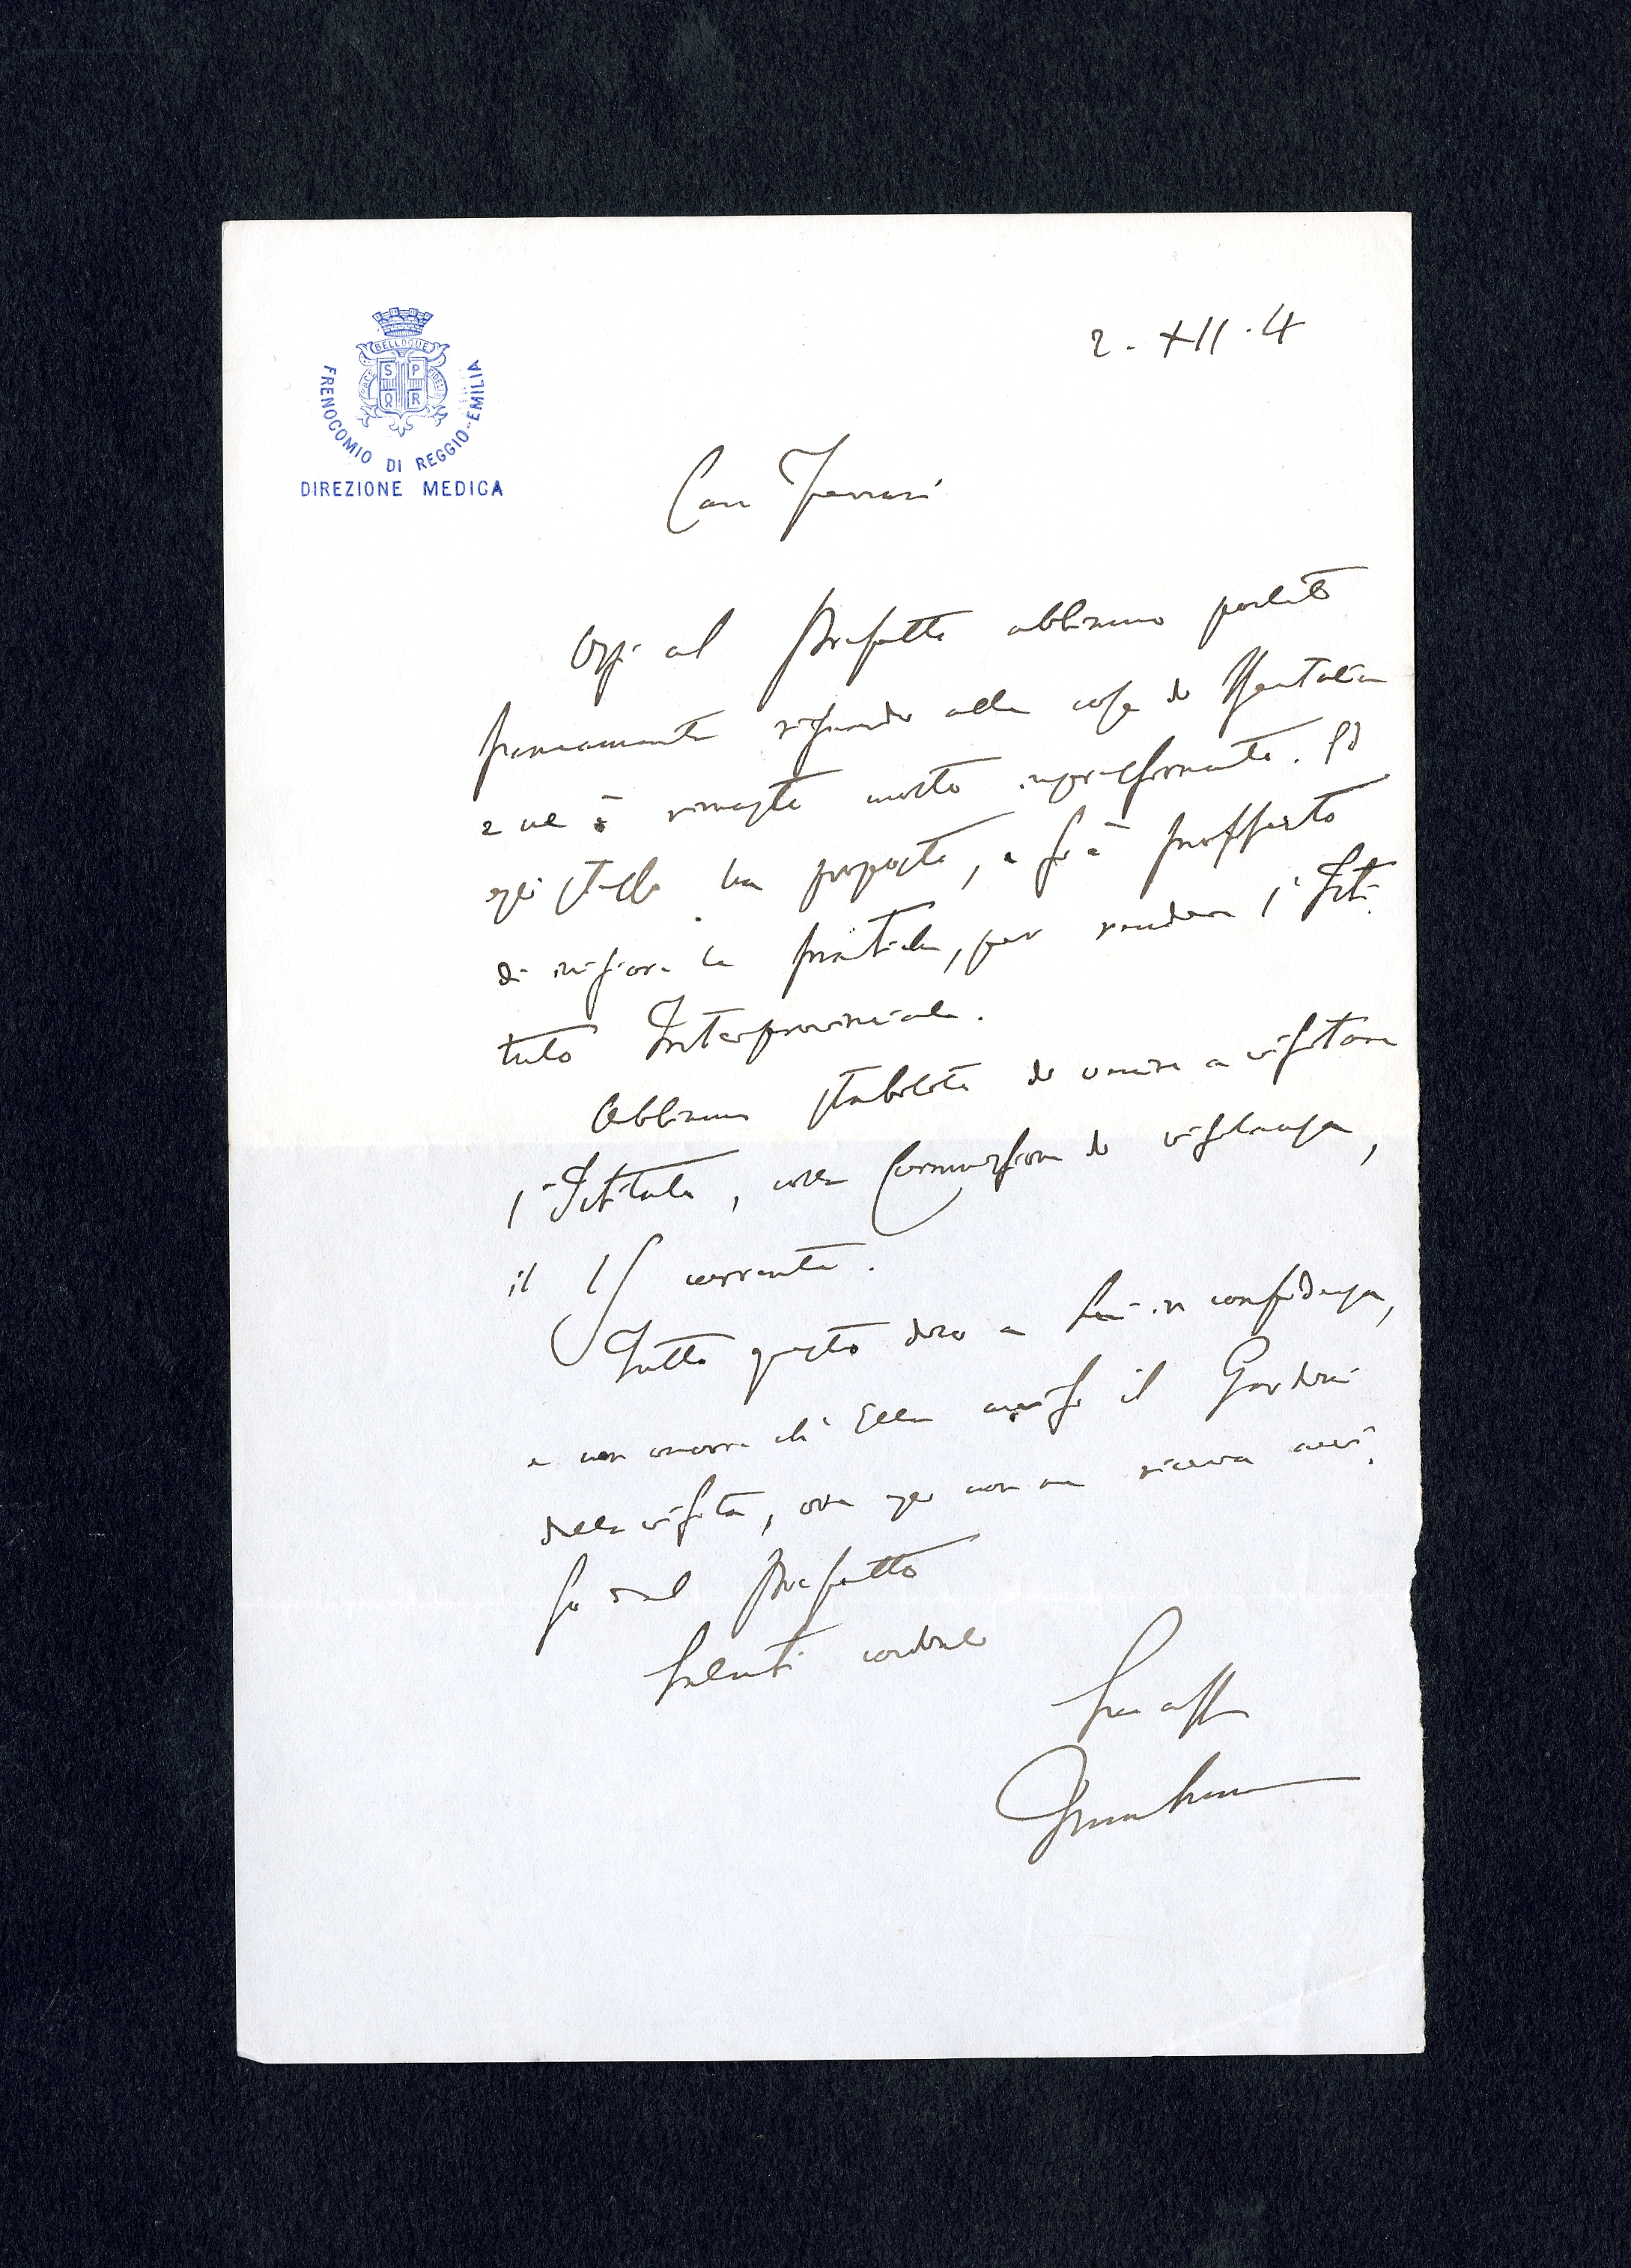 BELLOQUE
PACE
FIDELIS
S P
Q R
FRENOCOMIO DI REGGIO-EMILIA
DIREZIONE MEDICA
2. XII. 4
Caro Ferrari
Oggi al Prefetto abbiamo parlato
francamente riguardo alle cose di Bertalia
e ne è rimasto molto impressionato. Ed
egli stesso ha proposto, e si è profferto
di iniziare le pratiche, per rendere l'Isti-
tuto Interprovinciale.
Abbiamo stabilito di venire a visitare
l'Istituto, colla Commissione di vigilanza,
il 15 corrente.
Tutto questo dico a Lei in confidenza,
e non occorre ch'Ella avvisi il Gordini
della visita, ove egli non ne riceva avvi-
so dal Prefetto
Saluti cordiali
Suo aff